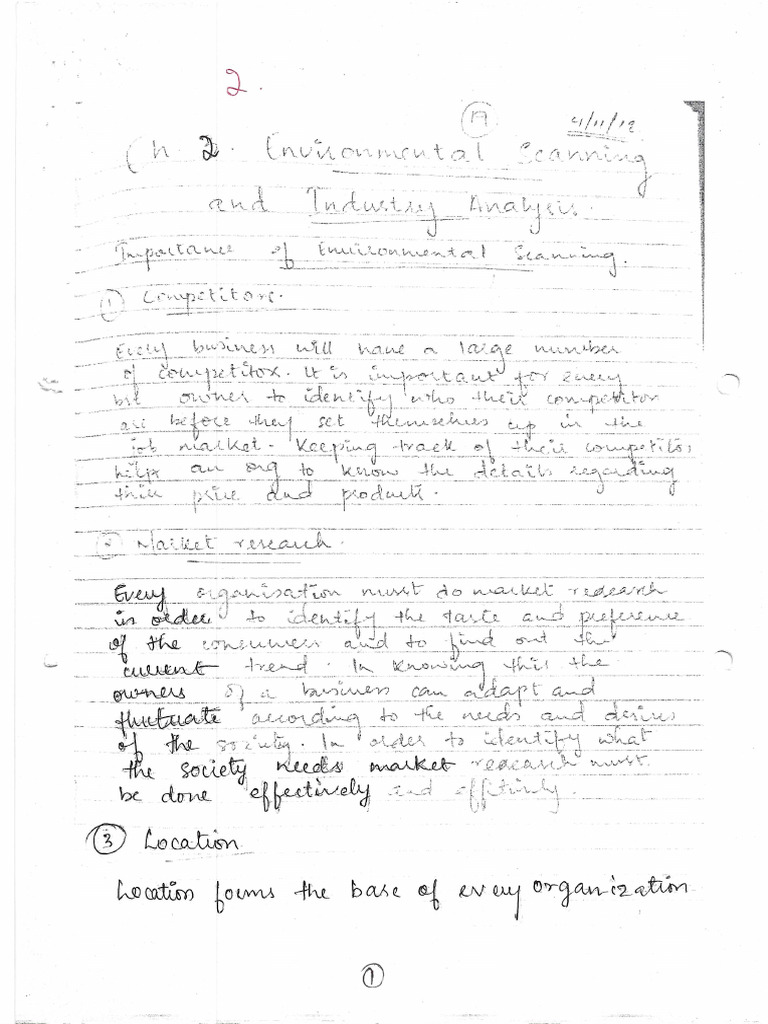 2.
19
4/11/19
Ch 2. Environmental Scanning
and Industry Analysis.
Importance of Environmental Scanning.
1 Competitors.
Every business will have a large number
of competitors. It is important for every
bst owner to identify who their competitor
are before they set themselves up in the
job market. Keeping track of their competitors
helps an org to know the details regarding
their price and products.
2 Market research.
Every organisation must do market research
in order to identify the taste and preference
of the consumers and to find out the
current trend. In knowing this the
owners of a business can adapt and
fluctuate according to the needs and desires
of the society. In order to identify what
the society needs market research must
be done effectively and effitively.
3 Location
Location forms the base of every organization
1